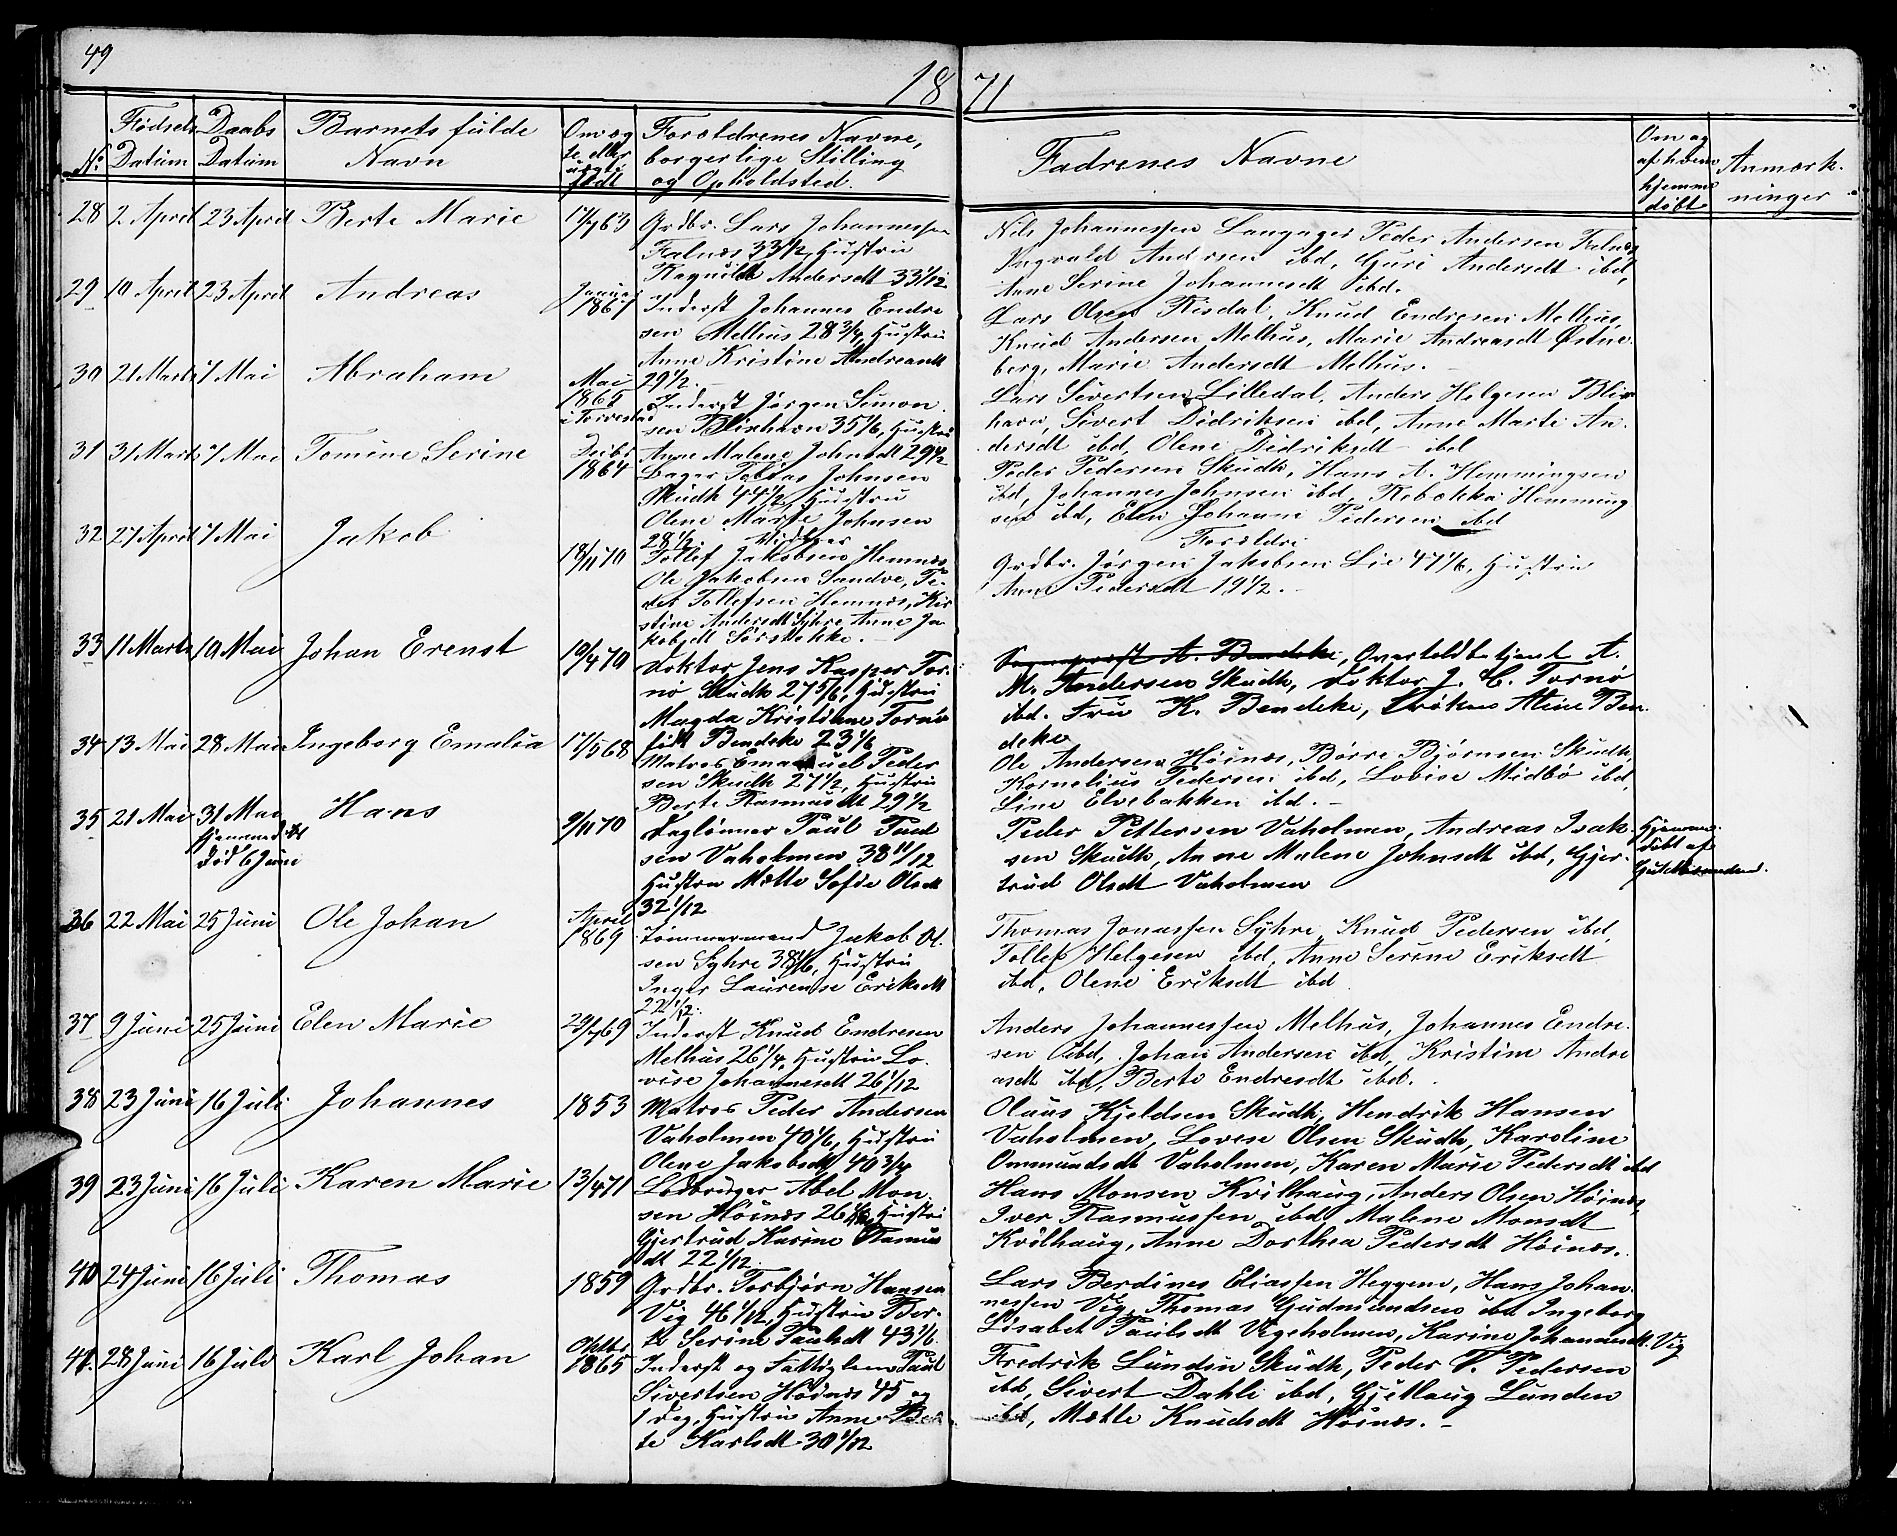 49
18 71
No
Fødsels Datum
Daabs Datum
Barnets fulde Navn
Om ægte eller uægte født
Forældrenes Navne, borgerlige Stilling og Opholdsted.
Fadrenes Navne
Om og af hvem hjemmedøbt
Anmærkninger
28 2 April 23 April Berte Marie 17/7 63
Grdbr. Lars Johannessen
Falnæs 33 1/2, Hustru
Ragnilde Andersdt 33 1/12
Nils Johannessen Langager Peder Andersen Falnæs,
Ingvald Andersen ibd, Guri Andersdt ibd,
Anne Serine Johannesdt ibd.
29 10 April 23 April Andreas Januar 1867
Inderst Johannes Endre
sen Melhus 28 3/4, Hustru
Anne Kristine Andreasdt
29 1/2.
Lars Olsen Risdal, Knud Endresen Melhus,
Knud Andersen Melhus, Marie Andreasdt Østne
berg, Marie Andersdt Melhus.
30 21 Marts 7 Mai Abraham Mai 1865 i Torvestad
Inderst Jørgen Simon
sen Blixhavn 35 1/6, Hustru
Anne Malene Johnsdt 29 1/2
Lars Sivertsen Lilledal, Anders Helgesen Blix
havn, Sivert Didriksen ibd, Anne Marte An
dersdt ibd, Olene Didriksdt ibd
31 31 Marts 7 Mai Tomine Serine Decbr 1864
Bager Tobias Johnsen
Skudh 44 1/2, Hustru
Olene Marie Johnsen
28 1/2.
Peder Pedersen Skudh, Hans A. Hemmingsen
ibd, Johannes Johnsen ibd, Rebekka Hemming
sen ibd, Elen Johanne Pedersen ibd
32 27 April 7 Mai Jakob 18/11 70
Vidner
Tollef Jakobsen Hemnes
Ole Jakobsen Sandve, Pe
der Tollefsen Hemnæs, Kir
stine Andersdt Syhre Anne Ja
kobsdt Sørstokke.
Forældre
Grdbr. Jørgen Jakobsen Lie 47 1/6, Hustru
Anne Pedersdt 19 1/2.
33 11 Marts 10 Mai Johan Erenst 10/4 70
Doktor Jens Kasper Tor
nø Skudh 27 5/6, Hustru
Magda Kristiane Tornø
født Bendeke 23 1/6
Sogneprest A. Bendeke, Overtoldbetjent A.
M. Andersen Skudh, Doktor J. C. Tornø
ibd. Fru K. Bendeke, Frøken Aline Ben
deke
34 13 Mai 28 Mai Ingeborg Emalia 17/5 68
Matros Emanuel Peder
sen Skudh 27 1/2, Hustru
Berte Rasmusdt 29 1/2
Ole Andersen Høinæs, Børre Bjørnsen Skudh,
Kornelius Pedersen ibd, Lovise Midbø ibd,
Line Elvebakken ibd.
35 21 Mai 31 Mai Hjemmedøbt Død 6 Juni Hans 9/11 70
Daglønner Paul Paul
sen Vaholmen 38 11/12
Hustru Mette Sofie Olsdt
32 1/12
Peder Pettersen Vaholmen, Andreas Isak
sen Skudh, Anne Malene Johnsdt ibd, Gjer
trud Olsdt Vaholmen
Hjemme
døbt af
36 22 Mai 25 Juni Ole Johan April 1869
Tømmermand Jakob Ol
sen Syhre 38 1/6, Hustru
Inger Laurense Eriksdt
22 1/2.
Thomas Jonassen Syhre, Knud Pedersen ibd,
Tollef Helgesen ibd, Anne Serine Eriksdt
ibd, Olene Eriksdt ibd
37 9 Juni 25 Juni Elen Marie 29/7 69
Inderst Knud Endresen
Melhus 26 1/4, Hustru Lo
vise Johannesdt 26 1/12
Anders Johannessen Melhus, Johannes Endre
sen ibd, Johan Andersen ibd, Kristine Andre
asdt ibd, Berte Endresdt ibd.
38 23 Juni 16 Juli Johannes 1853
Matros Peder Andersen
Vaholmen 40 1/6, Hustru
Olene Jakobsdt 40 3/4
Olaus Kjeldsen Skudh, Hendrik Hansen
Vaholmen, Lovise Olsen Skudh, Karoline
Ommundsdt Vaholmen, Karen Marie Pedersdt ibd
39 23 Juni 16 Juli Karen Marie 13/4 71
Lodbruger Abel Mon
sen Høinæs 26 1/6, Hustru
Gjertrud Karine Rasmus
dt 22 1/12.
Hans Monsen Kvilhaug, Anders Olsen Høinæs,
Iver Rasmussen ibd Malene Monsdt
Kvilhaug, Anne Dorthea Pedersdt Høinæs.
40 24 Juni 16 Juli Thomas 1859
Grdbr. Torbjørn Hansen
Vig 46 1/12, Hustru Ber
te Serine Paulsdt 43 1/6.
Lars Berdines Eliassen Heggem, Hans Johan
nessen Vig, Thomas Gudmundsen ibd Ingeborg
Lisabet Paulsdt Vigeholmen, Karine Johannesdt. Vig
41. 28 Juni 16 Juli Karl Johan Oktbr 1865
Inderst og Fattiglem Paul
Sivertsen Høinæs 45 og
1 Dag, Hustru Anne Ber
te Karlsdt 30 1/12
Fredrik Lundin Skudh, Peder T. Pedersen
ibd, Sivert Dahle ibd, Gjetlaug Lunden
ibd, Mette Knudsdt Høinæs.